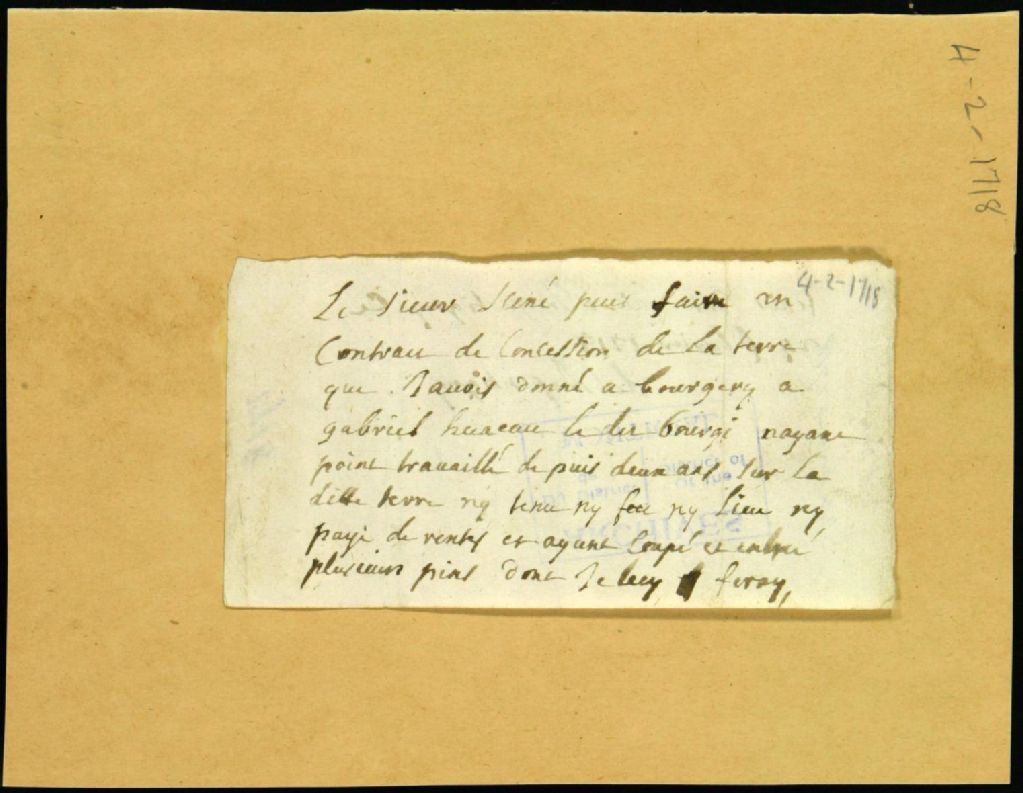 4-2-1718
4-2-1718
Le sieur peut faire un
Contract de Concession de la terre
que Javois donné a bourgery a
gabriel le dit bourgi nayant
point travaillé depuis deux ans sur la
ditte terre ny tenu ny feu ny lieu ny
payé de rentes et ayant Coupé et enlevé
plusieurs pins dont Je luy feray